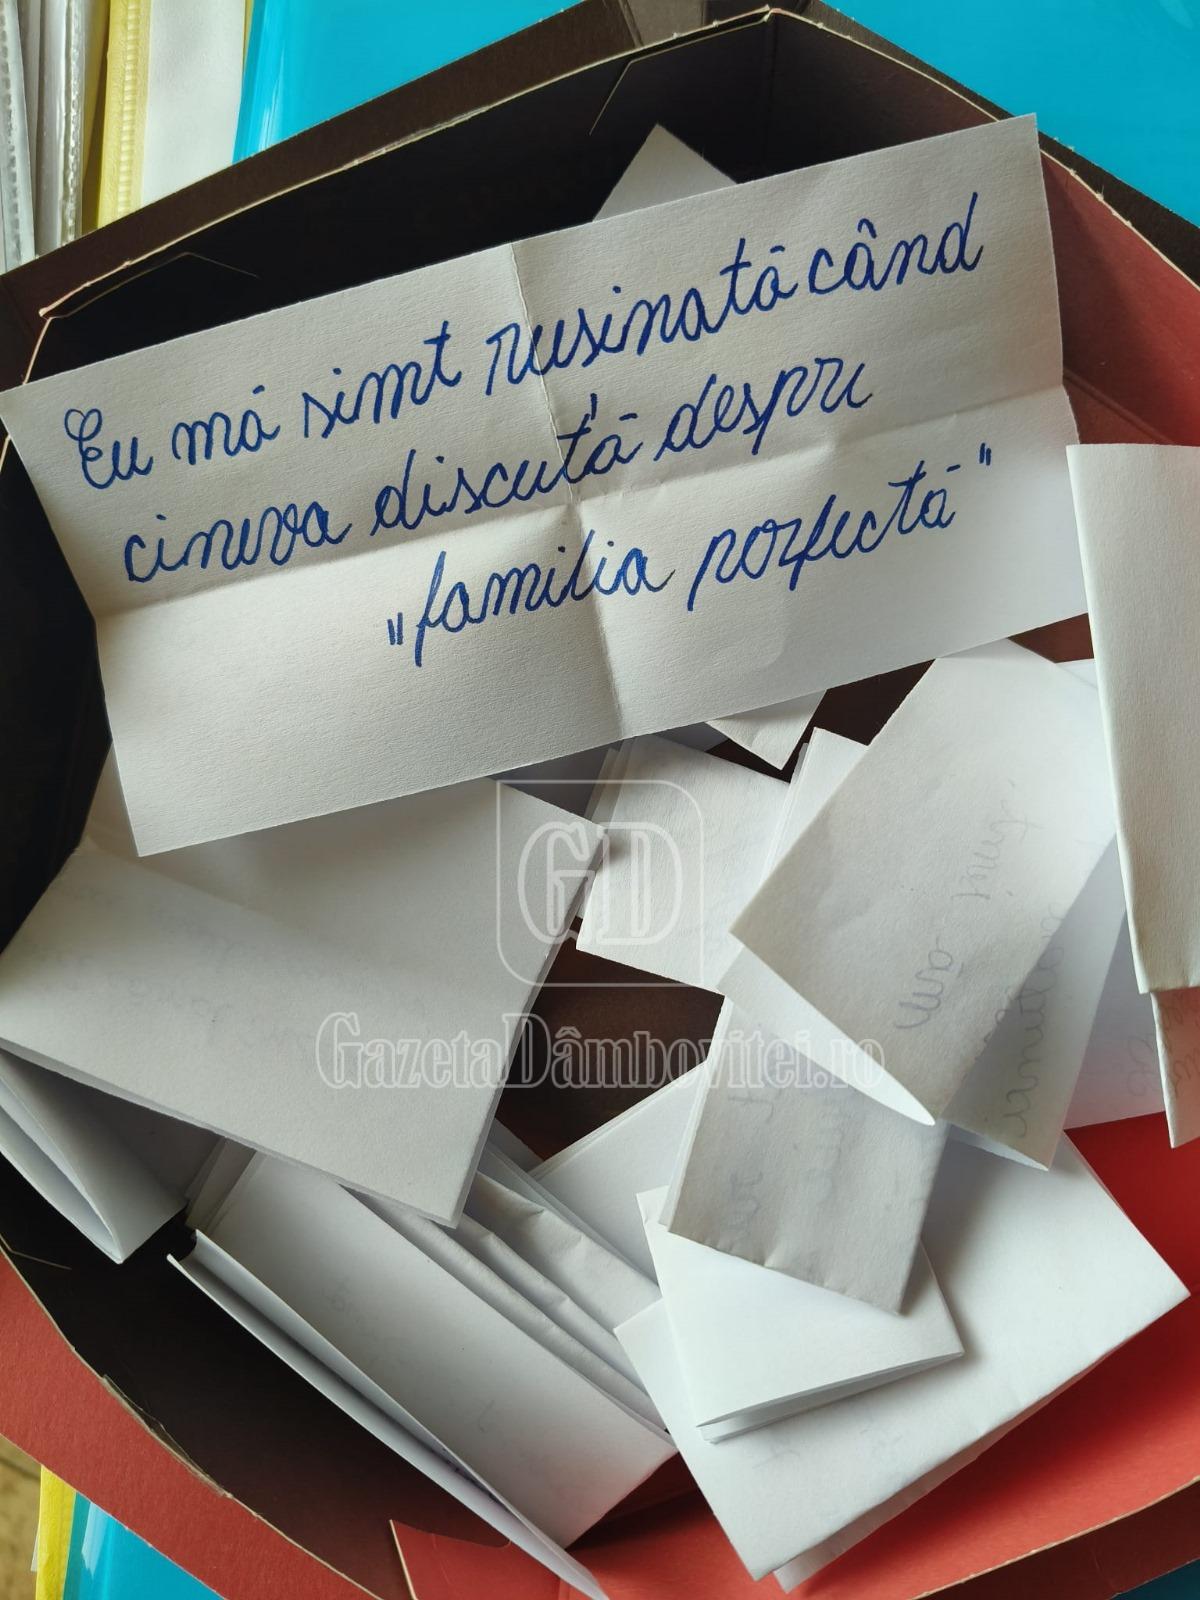 Eu mă simt rusinată când
cineva discută despre
„familia perfectă"
GD
GazetaDâmbovitei.ro